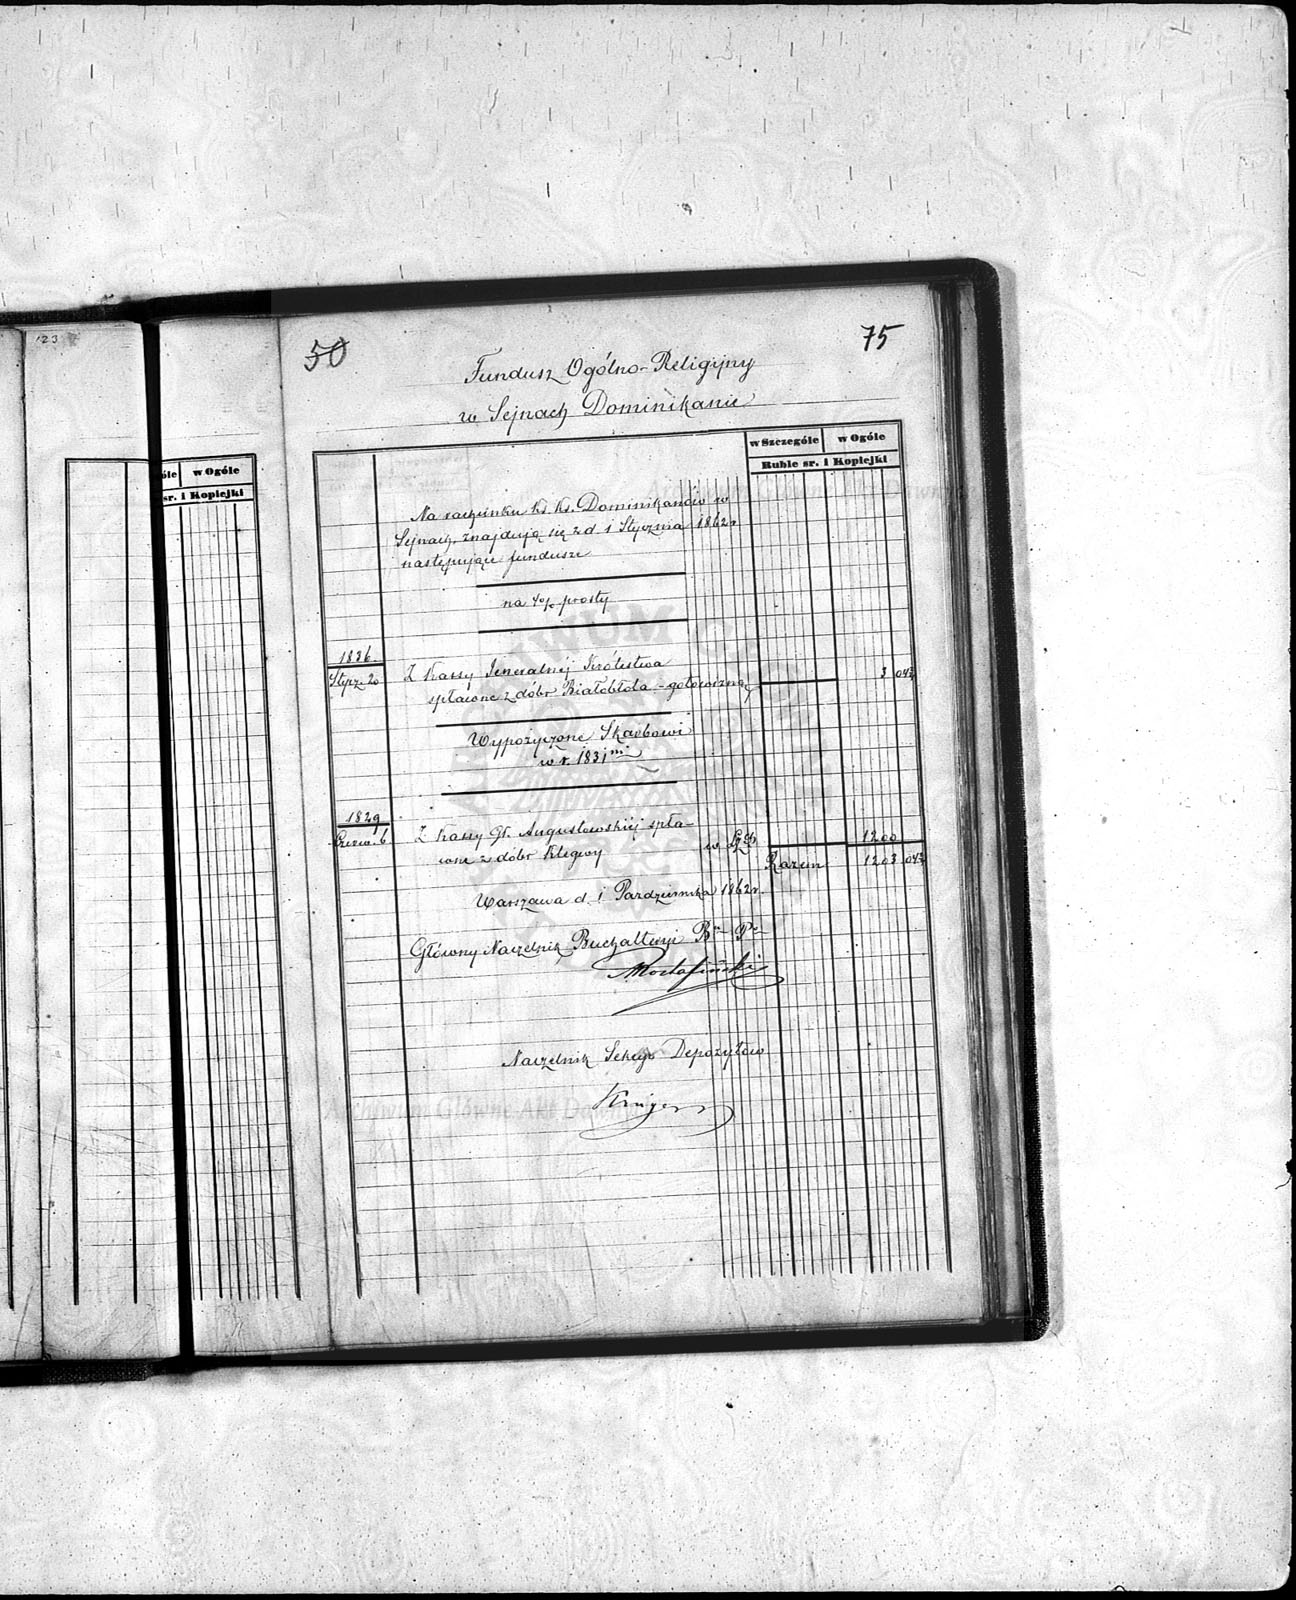 123
50
75
Fundusz Ogólno-Religijny
w Sejnach Dominikanie
óle w Ogóle
sr. i Kopiejki
w Szczególe w Ogóle
Ruble sr. i Kopiejki
Na rachunku Ks. Ks. Dominikanów w
Sejnach, znajdują się z d. 1 Stycznia 1862 r
następujące fundusze
na 4% prosty
1836.
Stycz. 20 Z Kassy Jeneralnéj Królestwa
spłacone z dóbr Białobłota - gotowizną 3 04½
Wypożyczone Skarbowi
w r. 1831
1829
Czerw. 6 Z Kassy Gł. Augustowskiéj spła-
cone z dóbr Klegwy w 1200
Razem 1203 04½
Warszawa d. 1 Pazdziernika 1862 r.
Główny Naczelnik Buchalteryi
Naczelnik Sekcyi Depozytów
Krüger
Archiwum Główne Akt Dawnych